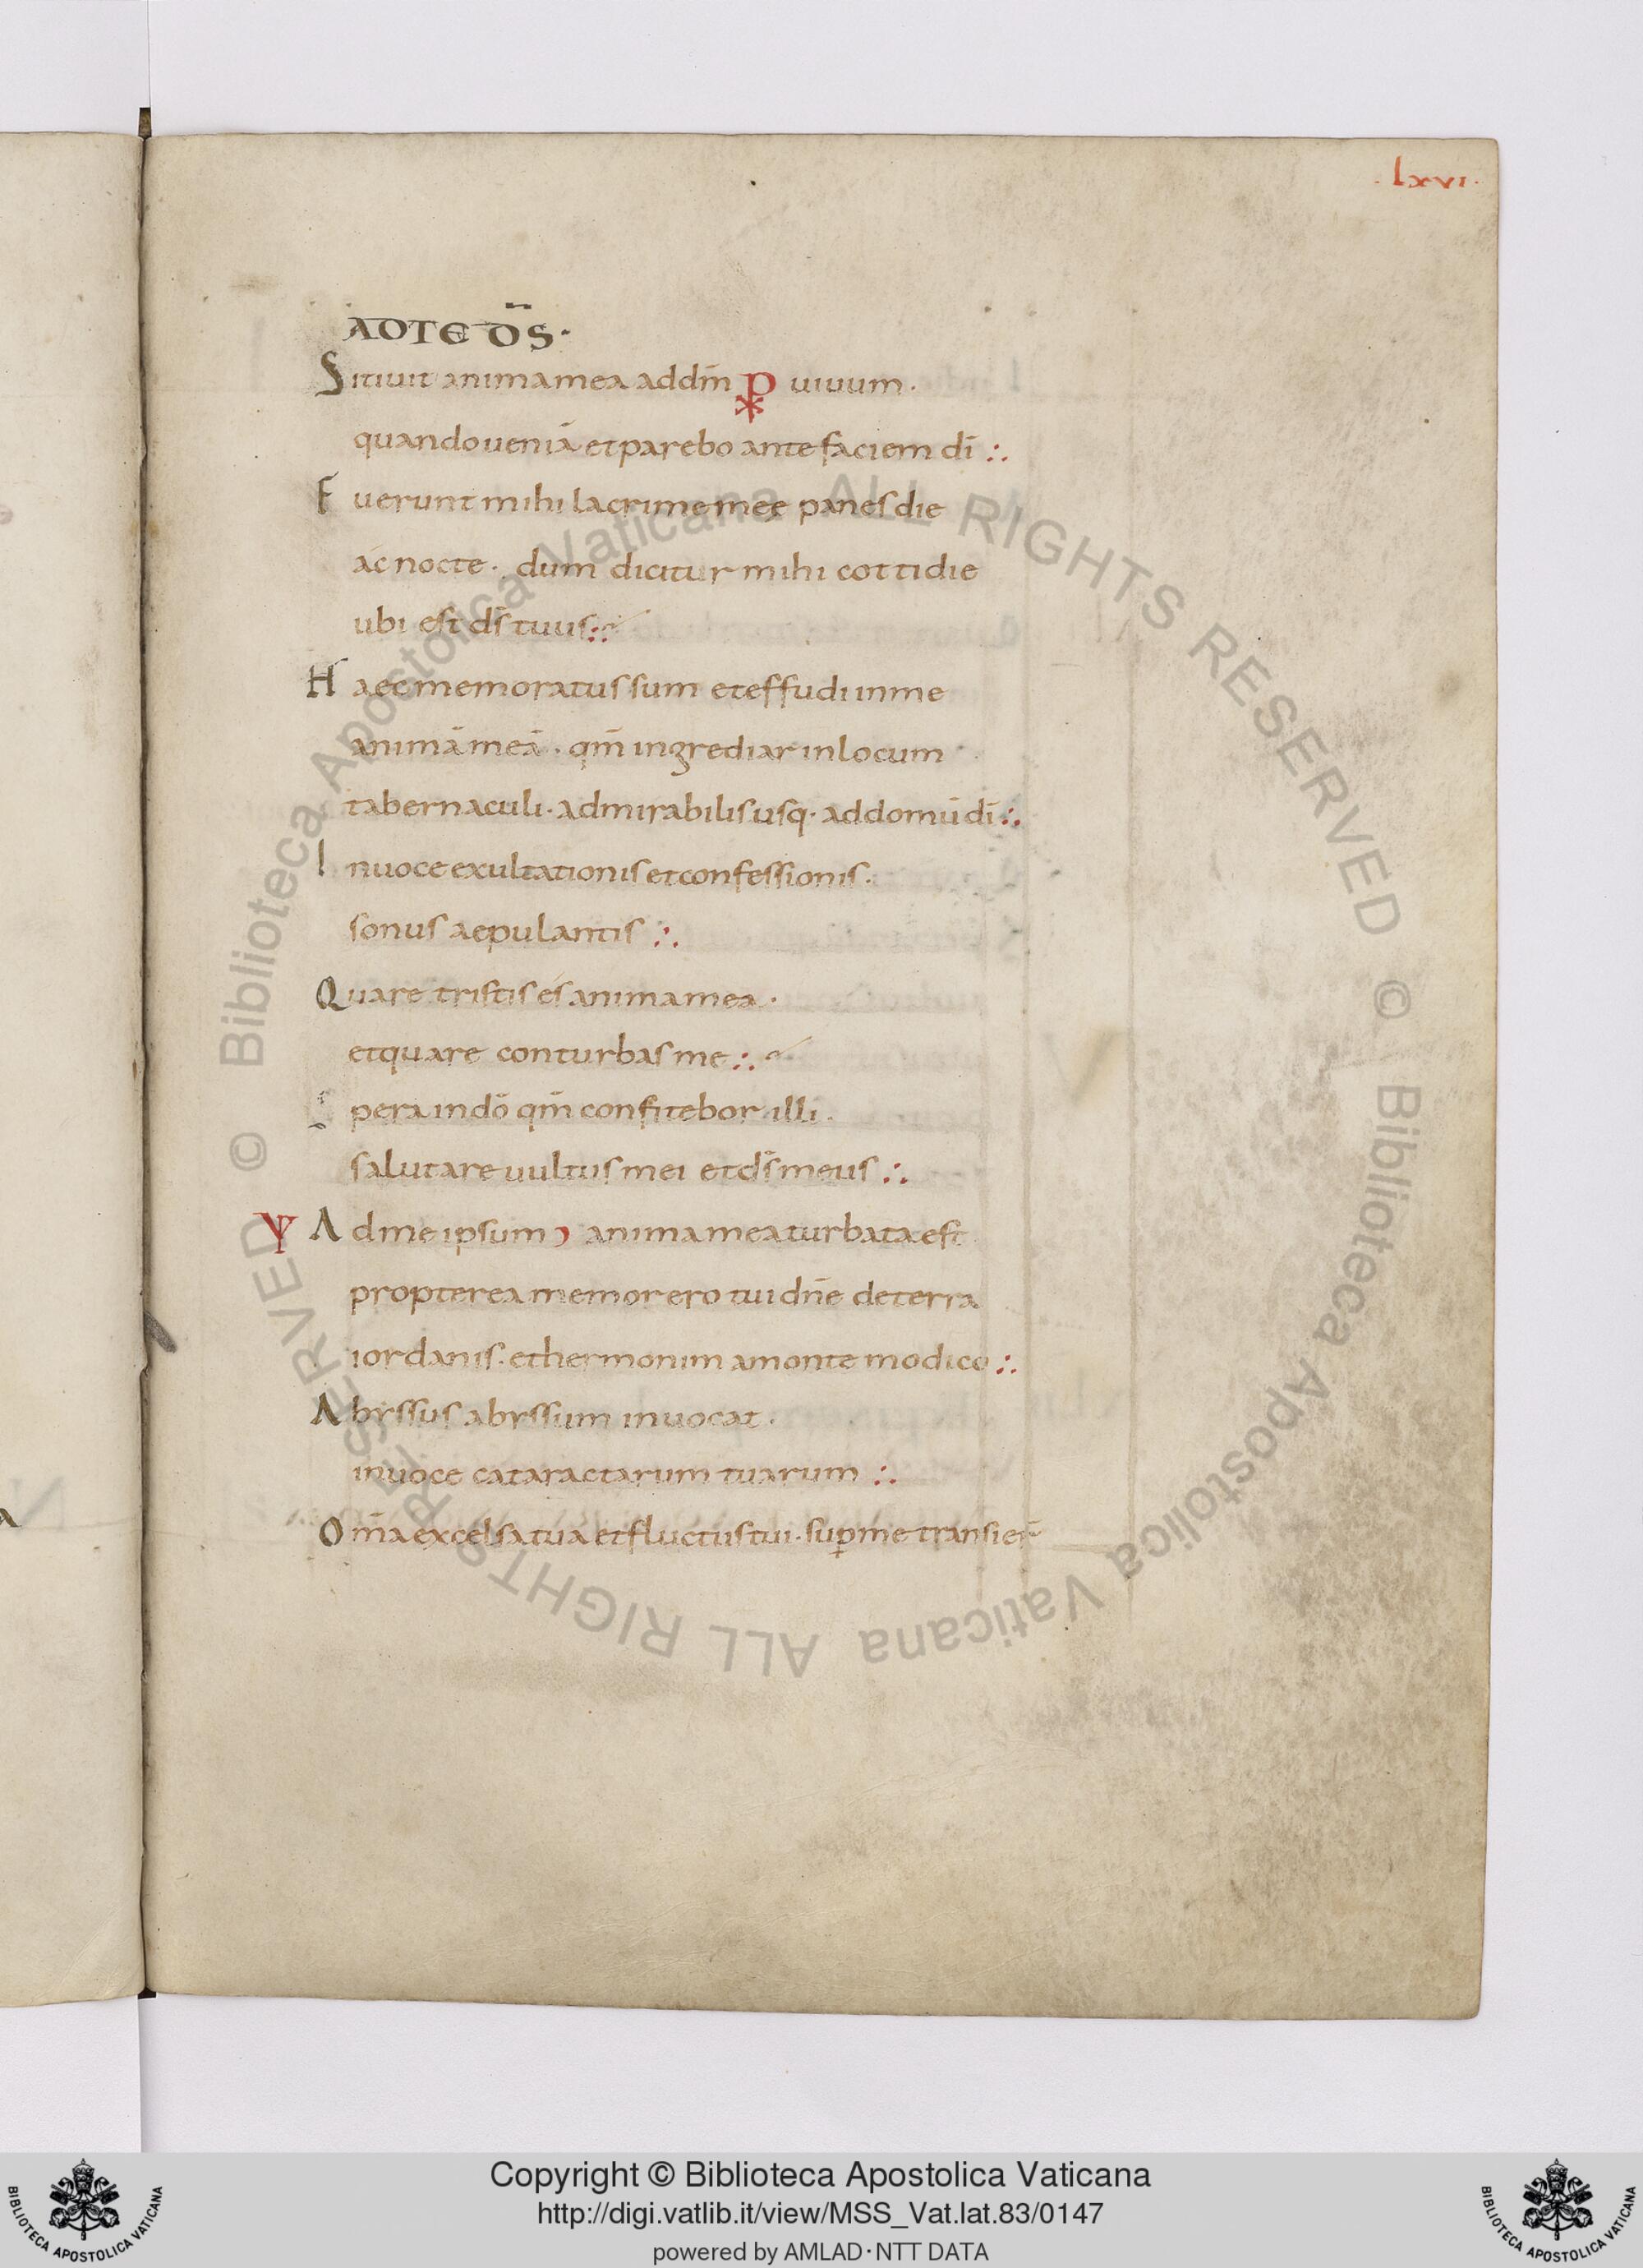 · lxvi ·
ADTE D̅S̅ ·
Sitiuit anima mea ad dm̅ P uiuum ·
quando ueniā et parebo ante faciem di̅ ∴
Fuerunt mihi lacrime mee panes die
ac nocte · dum dicitur mihi cottidie
ubi est ds̅ tuus ∴
Haec memoratus sum et effudi in me
animā meā · qm̅ ingrediar in locum
tabernaculi · admirabilis usq · ad domū di̅ ∴
In uoce exultationis et confessionis ·
sonus aepulantis ∴
Quare tristis és anima mea ·
et quare conturbas me ∴
Spera in dō qm̅ confitebor illi ·
salutare uultus mei et ds̅ meus ∴
Ad me ipsum anima mea turbata est
propterea memor ero tui dn̅e de terra
iordanis · et hermonim a monte modico ∴
Abyssus abyssum inuocat ·
in uoce cataractarum tuarum ∴
Om̅a excelsa tua et fluctus tui · sup̱ me transier̅
Copyright © Biblioteca Apostolica Vaticana
http://digi.vatlib.it/view/MSS_Vat.lat.83/0147
powered by AMLAD·NTT DATA
BIBLIOTECA APOSTOLICA VATICANA
BIBLIOTECA APOSTOLICA VATICANA
© Biblioteca Apostolica Vaticana ALL RIGHTS RESERVED
© Biblioteca Apostolica Vaticana ALL RIGHTS RESERVED